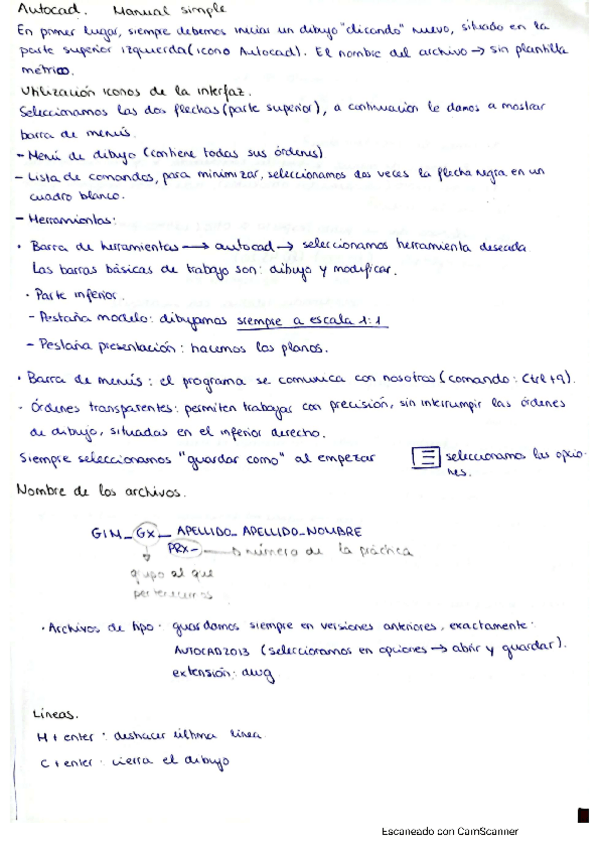 Autocad. Manual simple
En primer lugar, siempre debemos iniciar un dibujo "clicando" nuevo, situado en la
parte superior izquierda (icono Autocad). El nombre del archivo → sin plantilla
métrico.
Utilización iconos de la interfaz.
Seleccionamos las dos flechas (parte superior), a continuación le damos a mostrar
barra de menús.
- Menú de dibujo (contiene todas sus órdenes)
- Lista de comandos, para minimizar, seleccionamos dos veces la flecha negra en un
cuadro blanco.
- Herramientas:
· Barra de herramientas → autocad → seleccionamos herramienta deseada
Las barras básicas de trabajo son: dibujo y modificar.
· Parte inferior.
- Pestaña modelo: dibujamos siempre a escala 1:1
- Pestaña presentación: hacemos los planos.
· Barra de menús: el programa se comunica con nosotros (comando: Ctrl+9).
· Órdenes transparentes: permiten trabajar con precisión, sin interrumpir las órdenes
de dibujo, situadas en el inferior derecho.
Siempre seleccionamos "guardar como" al empezar seleccionamos las opcio-
nes.
Nombre de los archivos.
GIM_GX_ APELLIDO_APELLIDO_NOMBRE
PRX- → número de la práctica
grupo al que
pertenecemos
· Archivos de tipo: guardamos siempre en versiones anteriores, exactamente:
AUTOCAD2013 (seleccionamos en opciones → abrir y guardar).
extensión: dwg
Líneas.
H + enter: deshacer última línea
C + enter: cierra el dibujo
Escaneado con CamScanner